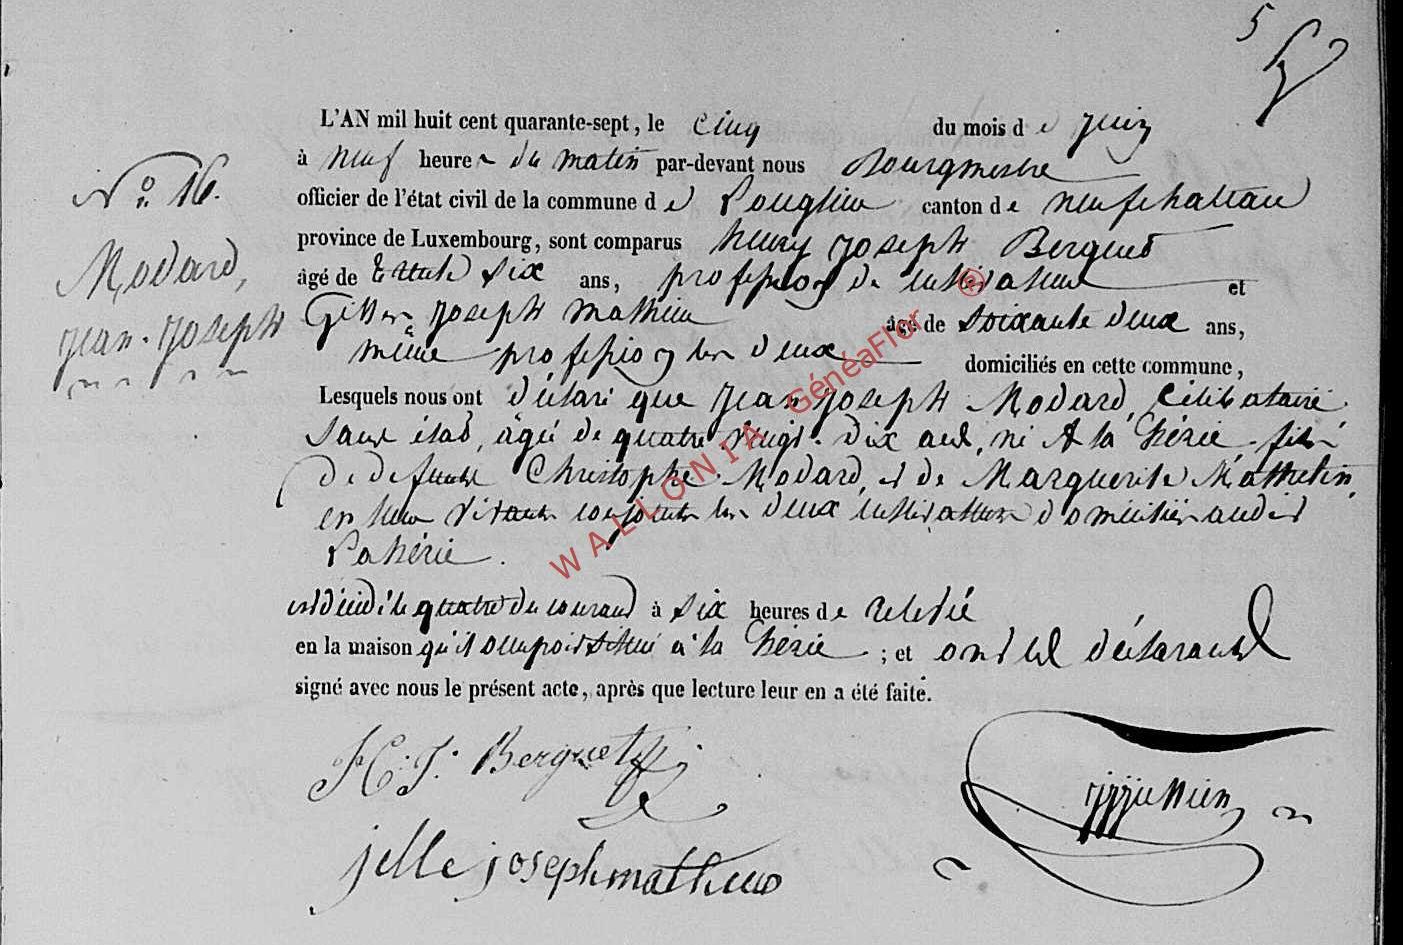 5
L'AN mil huit cent quarante-sept, le cinq du mois de juin
à neuf heures du matin par-devant nous Bourgmestre
N° 16.
officier de l'état civil de la commune de Longlier canton de neufchateau
province de Luxembourg, sont comparus henry joseph Berguet
Modard,
âgé de trente six ans, profession de cultivateur et
jean-joseph
joseph mathieu âgé de soixante deux ans,
même profession les deux domiciliés en cette commune,
Lesquels nous ont déclaré que jean joseph Modard, célibataire
sans état, âgé de quatre vingt-dix ans, né à la hérie fils
de defunts Christophe Modard, et de Marguerite
en leur vivant conjoints les deux cultivateurs domiciliés audit
Lahérie.
est décédé le quatre du courant à six heures de relevée
en la maison qu'il occupoit située à la hérie ; et ont les déclarants
signé avec nous le présent acte, après que lecture leur en a été faite.
H. J. Berguet
jelle joseph mathieu
WALLONIA GénéaFlor ®